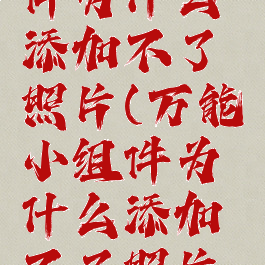 件为什么
添加不了
照片(万能
小组件为
什么添加
不了照片